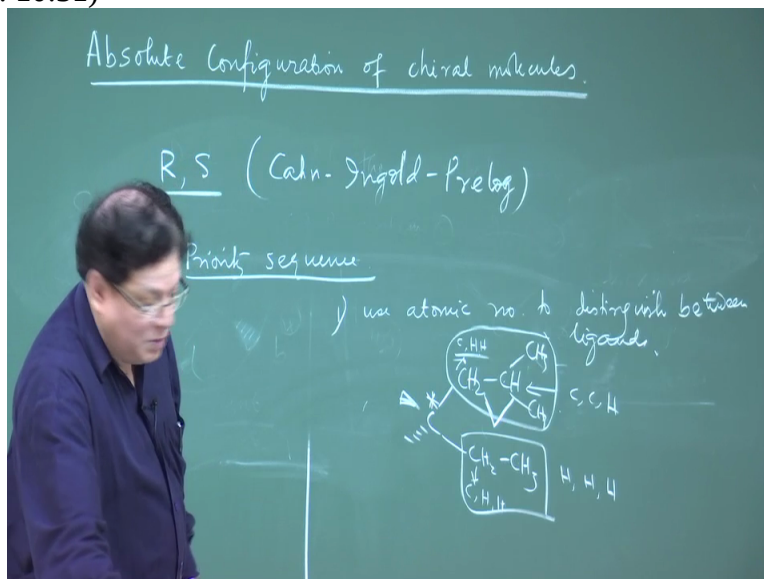 10:31)
Absolute Configuration of chiral molecules.
R, S (Cahn-Ingold-Prelog)
Priority sequence
1) use atomic no. to distinguish between
ligands.
C, H, H
CH3
CH2-CH
C, C, H
CH3
CH2-CH3
H, H, H
C, H, H